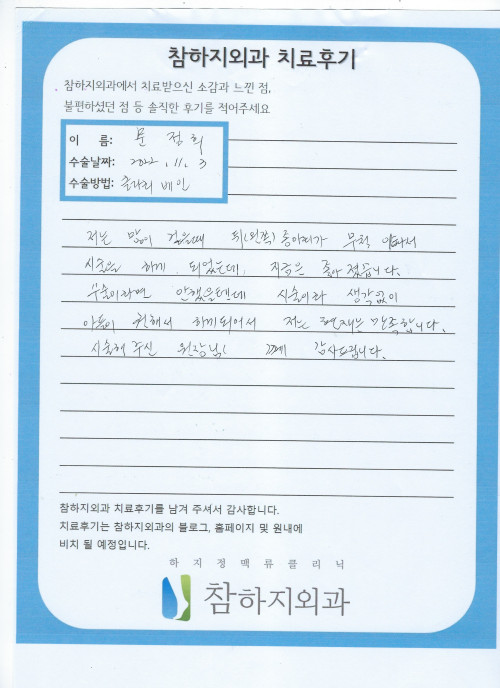 참하지외과 치료후기
참하지외과에서 치료받으신 소감과 느낀 점,
불편하셨던 점 등 솔직한 후기를 적어주세요
이 름: 문 정 희
수술날짜: 2022. 11. 3
수술방법: 클라리 베인
저는 많이 걸을때 뒤(왼쪽) 종아리가 무척 아파서
시술을 하게 되었는데, 지금은 좋아졌습니다.
수술이라면 안했을텐데 시술이라 생각없이
아들이 원해서 하게되어서 저는 현재는 만족합니다.
시술해 주신 원장님! 께 감사드립니다.
참하지외과 치료후기를 남겨 주셔서 감사합니다.
치료후기는 참하지외과의 블로그, 홈페이지 및 원내에
비치 될 예정입니다.
하지정맥류클리닉
참하지외과